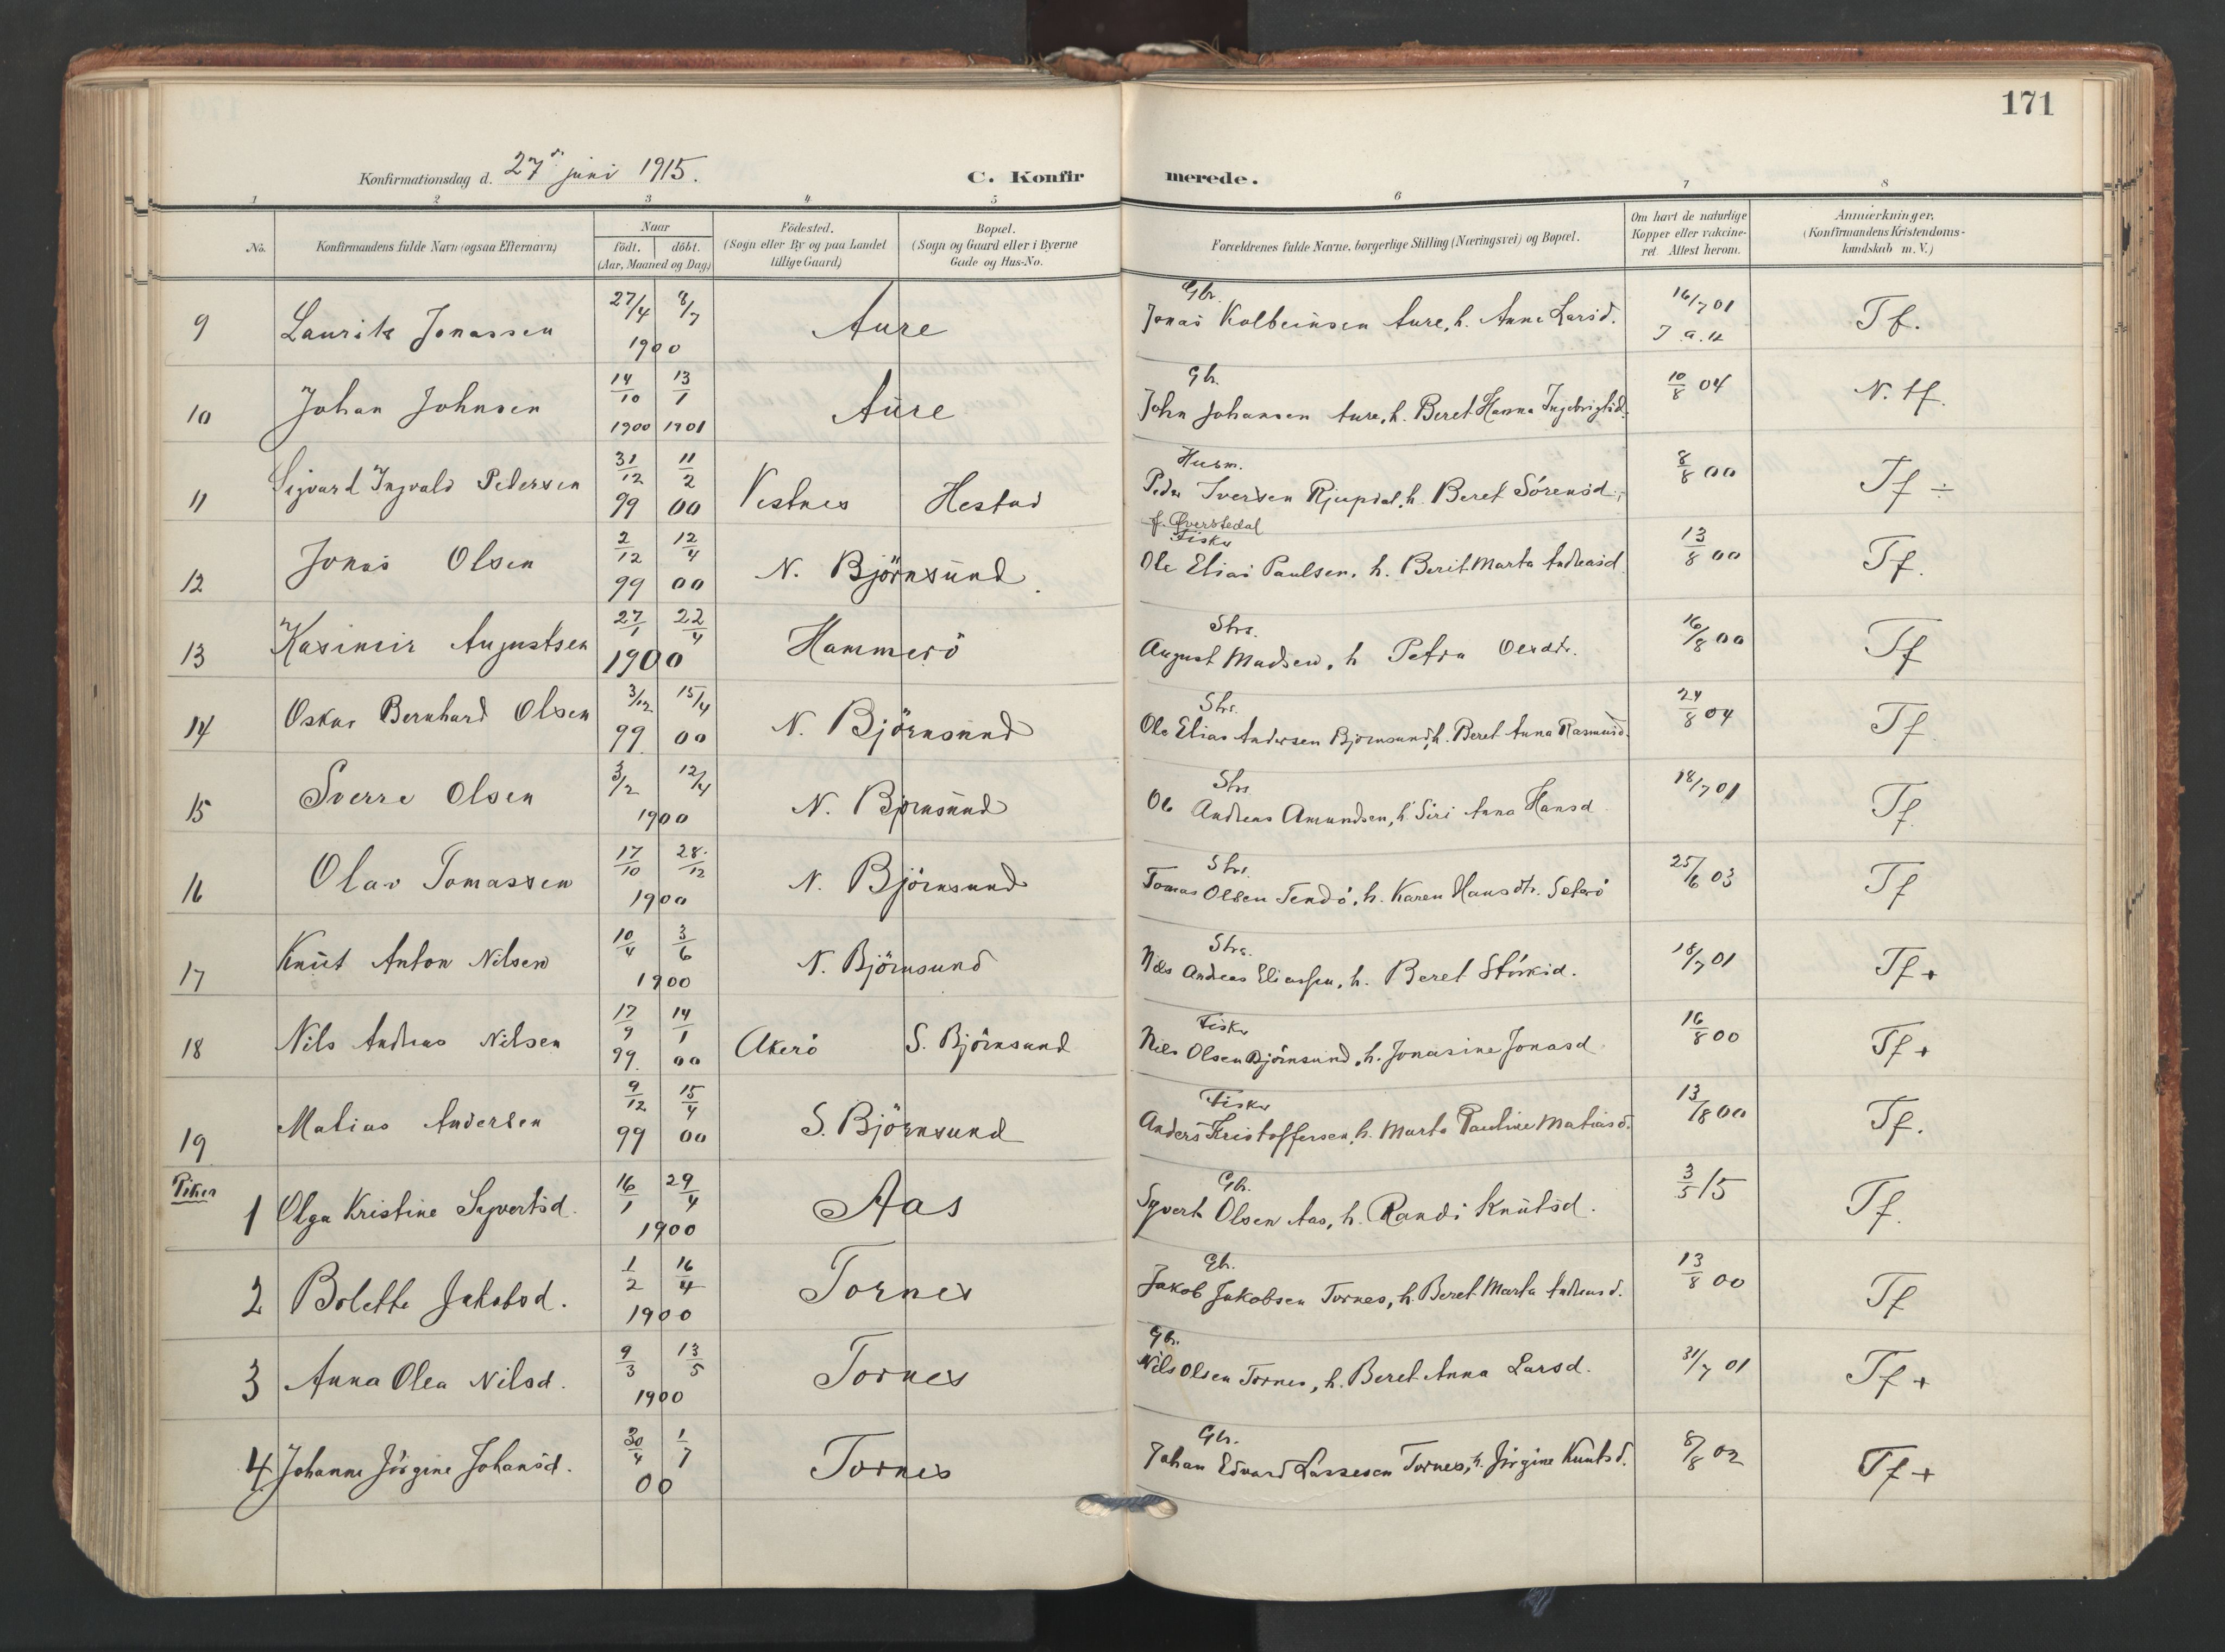 171
Konfirmationsdag d. 27de juni 1915.
C. Konfirmerede.
1 2 3 4 5 6 7 8
No.
Konfirmandens fulde Navn (ogsaa Efternavn)
Naar
födt. döbt.
(Aar, Maaned og Dag)
Födested.
(Sogn eller By og paa Landet
tillige Gaard)
Bopæl.
(Sogn og Gaard eller i Byerne
Gade og Hus-No.
Forældrenes fulde Navne, borgerlige Stilling (Næringsvei) og Bopæl.
Om havt de naturlige
Kopper eller vakcine-
ret. Attest herom.
Anmærkninger.
(Konfirmandens Kristendoms-
kundskab m. V.)
9 Laurits Jonassen 27/4 8/7 1900 Aure
Gbr.
Jonas Kolbeinsen Aure, h. Anne Larsd. 16/7 01 Tf.
10 Johan Johnsen 14/10 1900 13/1 1901 Aure
Gbr.
John Johansen Aure, h. Beret Hanna Ingebrigtsd. 10/8 04 N. tf.
11 Sigvard Ingvald Pedersen 31/12 99 11/2 00 Vestnes Hestad
Husm.
Peder Iversen Rjupdal, h. Beret Sörensd. 8/8 00 Tf ÷
f. Øverstedal
12 Jonas Olsen 2/12 99 12/4 00 N. Björnsund.
Fisker
Ole Elias Paulsen, h. Berit Marta Andreasd. 13/8 00 Tf.
13 Kasimir Augustsen 27/1 22/4 1900 Hammerö
Strs.
August Madsen, h. Petra Olsdtr. 16/8 00 Tf
14 Oskar Bernhard Olsen 3/12 99 15/4 00 N. Björnsund
Strs.
Ole Elias Andersen Björnsund, h. Beret Anna Rasmusd. 24/8 04 Tf
15 Sverre Olsen 3/2 12/4 1900 N. Björnsund
Strs
Ole Andreas Amundsen, h. Siri Anna Hansd 18/7 01 Tf.
16 Olav Tomassen 17/10 28/12 1900 N. Björnsund
Strs.
Tomas Olsen Tendö, h. Karen Hansdtr.Seterö 25/6 03 Tf
17 Knut Anton Nilsen 10/4 3/6 1900 N. Björnsund
Strs.
Nils Andreas Eliassen, h. Beret 18/7 01 Tf +
18 Nils Andreas Nilsen 17/9 99. 14/1 00 Akerö S. Björnsund
Fisker
Nils Olsen Björnsund, h. Jonasine Jonasd 16/8 00 Tf +
19 Matias Andersen 9/12 99 15/4 00 S. Björnsund
Fisker
Anders Kristoffersen, h. Marta Pauline Matiasd. 13/8 00 Tf.
Piker
1 Olga Kristine Syvertsd. 16/1 29/4 1900 Aas
Gbr.
Syvert Olsen Aas, h. Randi Knutsd. 3/5 15 Tf.
2 Bolette Jakobsd. 1/2 16/4 1900 Tornes
Gbr.
Jakob Jakobsen Tornes, h. Beret Marta Andreasd. 13/8 00 Tf
3 Anna Olea Nilsd. 9/3 13/5 1900 Tornes
Gbr.
Nils Olsen Tornes, h. Beret Anna Larsd. 31/7 01 Tf +
4 Johanne Jörgine Johansd. 30/4 1/7 00 Tornes
Gbr.
Johan Edvard Lassesen Tornes, h. Jörgine Knutsd. 8/8 02 Tf +